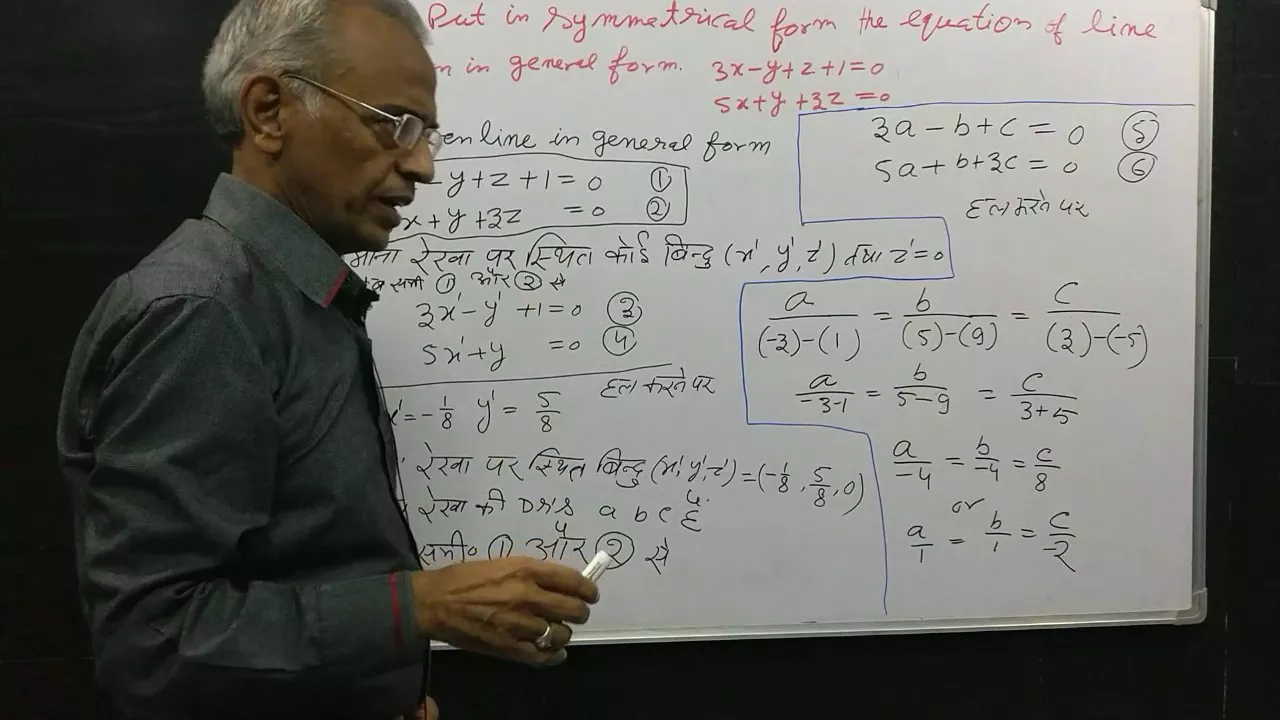 Put in symmetrical form the equation of line
in general form. 3x-y+z+1=0
5x+y+3z=0
line in general form
-y+z+1=0 ①
x+y+3z =0 ②
माना रेखा पर स्थित कोई बिन्दु (x',y',z') तथा z'=0
समी ① और ② से
3x'-y' +1=0 ③
5x'+y =0 ④
हल करने पर
x'=-1/8 y'=5/8
रेखा पर स्थित बिन्दु (x',y',z')=(-1/8, 5/8, 0)
रेखा की Dr's a b c हैं
समी० ① और ② से
3a-b+c=0 ⑤
5a+b+3c=0 ⑥
हल करने पर
a/((-3)-(1)) = b/((5)-(9)) = c/((3)-(-5))
a/(-3-1) = b/(5-9) = c/(3+5)
a/-4 = b/-4 = c/8
or
a/1 = b/1 = c/-2